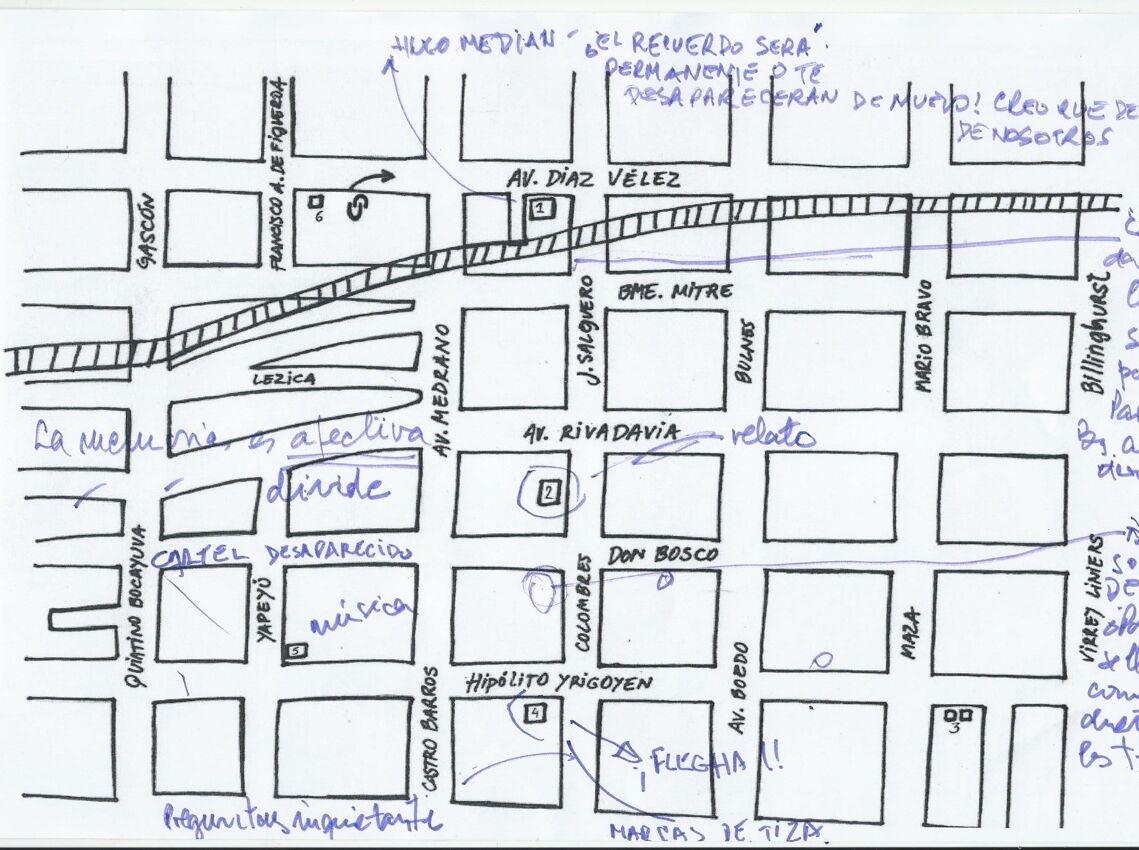 HUGO MEDIAN "¿EL RECUERDO SERA"
PERMANENTE O TE
DESAPARECERAN DE NUEVO! CREO QUE DE
DE NOSOTROS
AV. DÍAZ VÉLEZ
GASCÓN
FRANCISCO A. DE FIGUEROA
6
1
BME. MITRE
J. SALGUERO
BULNES
MARIO BRAVO
Billinghurst
AV. MEDRANO
LEZICA
La memoria es afectiva
AV. RIVADAVIA
relato
divide
2
CARTEL DESAPARECIDO
DON BOSCO
QUINTINO BOCAYUVA
YAPEYÚ
música
5
COLOMBRES
MAZA
VIRREY LINIERS
AV. BOEDO
HIPÓLITO YRIGOYEN
CASTRO BARROS
4
3
¡FLECHA!!
Preguntas inquietante
MARCAS DE TIZA.